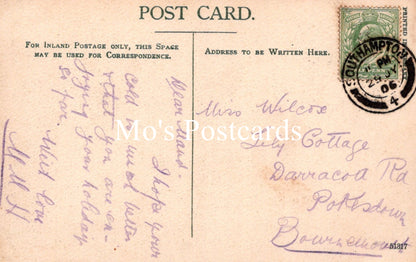 POST CARD.
FOR INLAND POSTAGE ONLY, THIS SPACE
MAY BE USED FOR CORRESPONDENCE.
ADDRESS TO BE WRITTEN HERE.
Dear Maud -
I hope your
cold is much better
& that you are en-
joying your holiday
so far.
Much love
M.M.H
Miss Wilcox
Lily Cottage
Darracott Rd
Pokesdown
Bournemouth
SOUTHAMPTON
PM
06
4
PRINTED
51817
Mo's Postcards